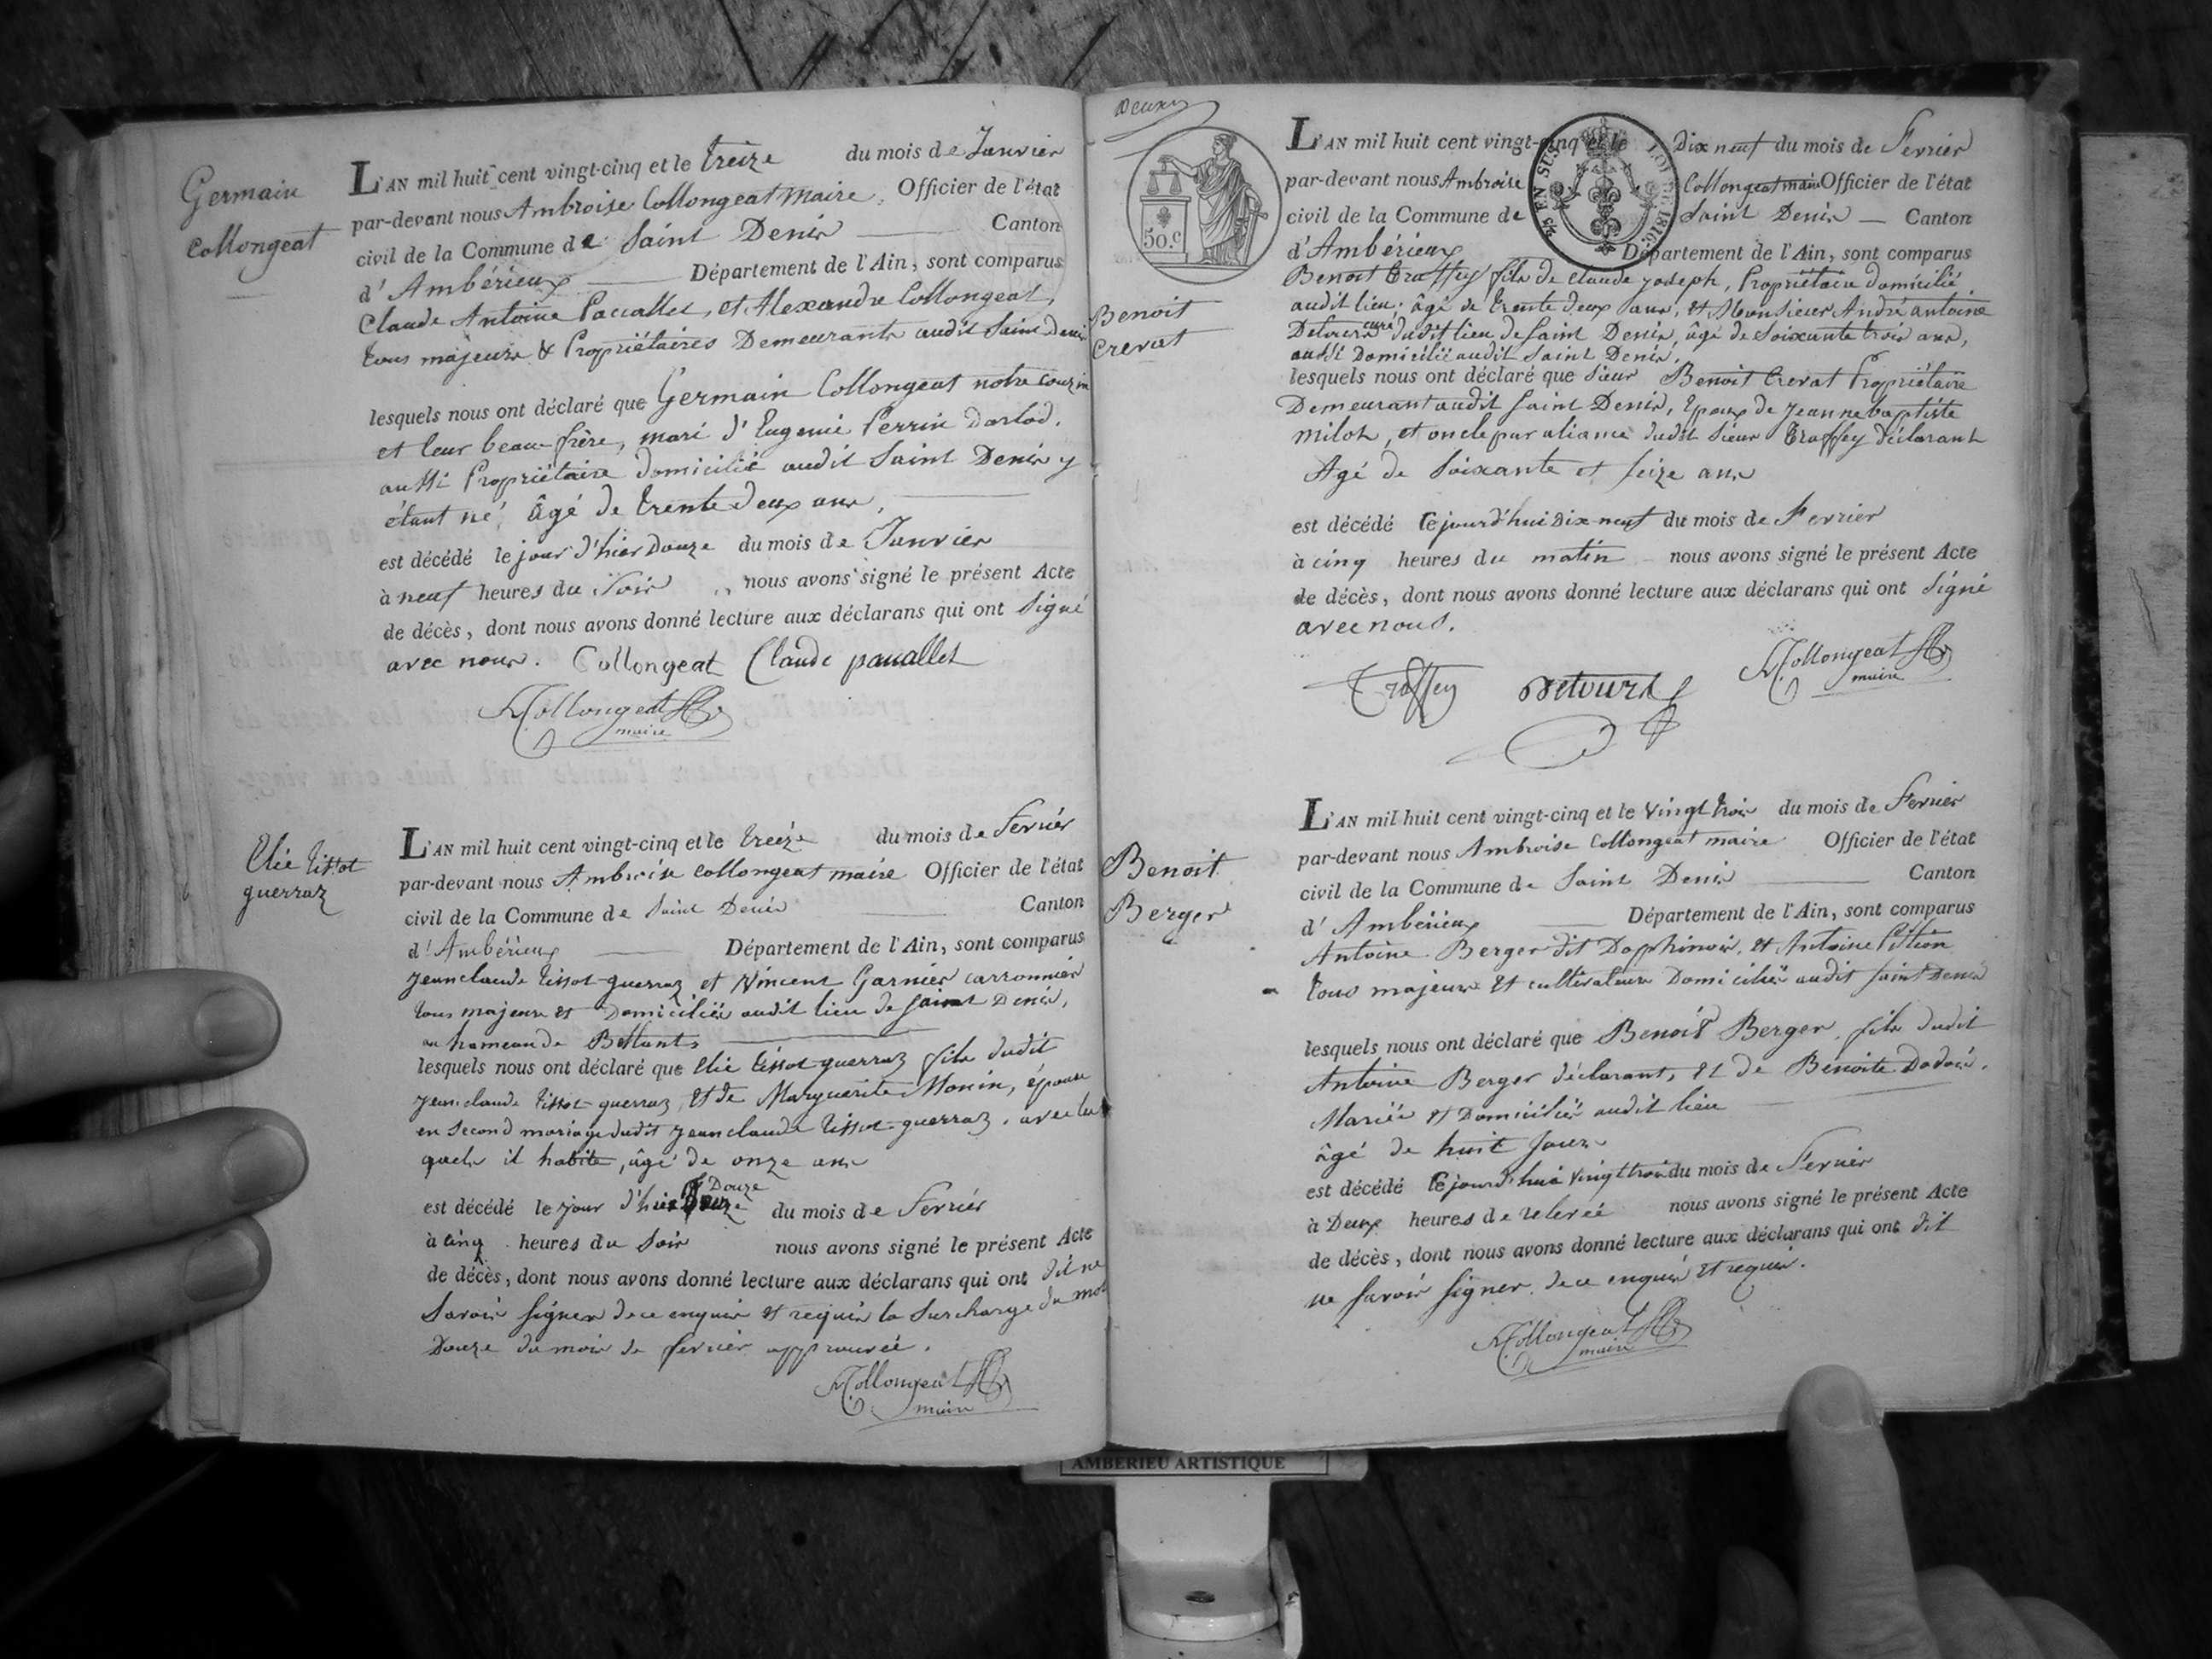 Germain
Collongeat
L'AN mil huit cent vingt-cinq et le treize du mois de Janvier
par-devant nous Ambroise Collongeat Maire, Officier de l'état
civil de la Commune de Saint Denis Canton
d'Ambérieux Département de l'Ain, sont comparus
Claude Antoine Paccallet, et Alexandre Collongeat,
tous majeurs & Propriétaires Demeurants audit Saint Denis
lesquels nous ont déclaré que Germain Collongeat notre couzin
et leur beau-frère, mari d'Eugenie Perrin Darlod,
aussi Propriétaire domicilié audit Saint Denis y
étant né, âgé de trente deux ans,
est décédé le jour d'hier Douze du mois de Janvier
à neuf heures du Soir nous avons signé le présent Acte
de décès, dont nous avons donné lecture aux déclarans qui ont Signé
avec nous. Collongeat Claude pacallet
A Collongeat
maire
Elie tissot
guerraz
L'AN mil huit cent vingt-cinq et le treize du mois de Fevrier
par-devant nous Ambroise Collongeat maire Officier de l'état
civil de la Commune de Saint Denis Canton
d'Ambérieux Département de l'Ain, sont comparus
jeanclaude tissot-guerraz et Vincent Garnier carronnier
tous majeurs et Domiciliés audit lieu de Saint Denis,
au hameau de Bettants
lesquels nous ont déclaré que Elie tissot-guerraz fils dudit
jeanclaude tissot-guerraz, et de Marguerite Monin, épouse
en Second mariage dudit jeanclaude tissot-guerraz, avec les
quels il habite, âgé de onze ans
Douze
est décédé le jour d'hier du mois de Fevrier
à cinq heures du Soir nous avons signé le présent Acte
de décès, dont nous avons donné lecture aux déclarans qui ont dit ne
Savoir signer de ce enquis et requis la Surcharge du mot
Douze du mois de fevrier approuvée.
A Collongeat
maire
Deux
50.C
EN SUS
LOI DE 1816
L'AN mil huit cent vingt-cinq et le Dix neuf du mois de Fevrier
par-devant nous Ambroise Collongeat maire Officier de l'état
civil de la Commune de Saint Denis Canton
d'Ambérieux Département de l'Ain, sont comparus
Benoit
Crevat
Benoit Traffey fils de Claude joseph, Propriétaire domicilié
audit lieu, âgé de trente deux ans, et Monsieur André antoine
Detours curé dudit lieu de Saint Denis, âgé de Soixante trois ans,
aussi Domicilié audit Saint Denis,
lesquels nous ont déclaré que Sieur Benoit Crevat Propriétaire
Demeurant audit Saint Denis, Epoux de Jeanne baptiste
Milot, et oncle par aliance dudit Sieur Traffey déclarant
Agé de Soixante et Seize ans
est décédé Cejourd'hui Dix neuf du mois de Fevrier
à cinq heures du matin nous avons signé le présent Acte
de décès, dont nous avons donné lecture aux déclarans qui ont Signé
avec nous.
Traffey Detours A Collongeat
maire
Benoit
Berger
L'AN mil huit cent vingt-cinq et le vingt trois du mois de Fevrier
par-devant nous Ambroise Collongeat maire Officier de l'état
civil de la Commune de Saint Denis Canton
d'Ambérieux Département de l'Ain, sont comparus
Antoine Berger dit Dopphinois, et Antoine Pition
tous majeurs et cultivateurs Domiciliés audit Saint Denis
lesquels nous ont déclaré que Benoit Berger, fils dudit
Antoine Berger déclarant, et de Benoite Dodoir,
Mariés et Domiciliés audit lieu
âgé de huit Jours
est décédé Cejourd'hui vingt trois du mois de Fevrier
à Deux heures de relevée nous avons signé le présent Acte
de décès, dont nous avons donné lecture aux déclarans qui ont dit
ne savoir signer, de ce enquis et requis.
A Collongeat
maire
AMBERIEU ARTISTIQUE